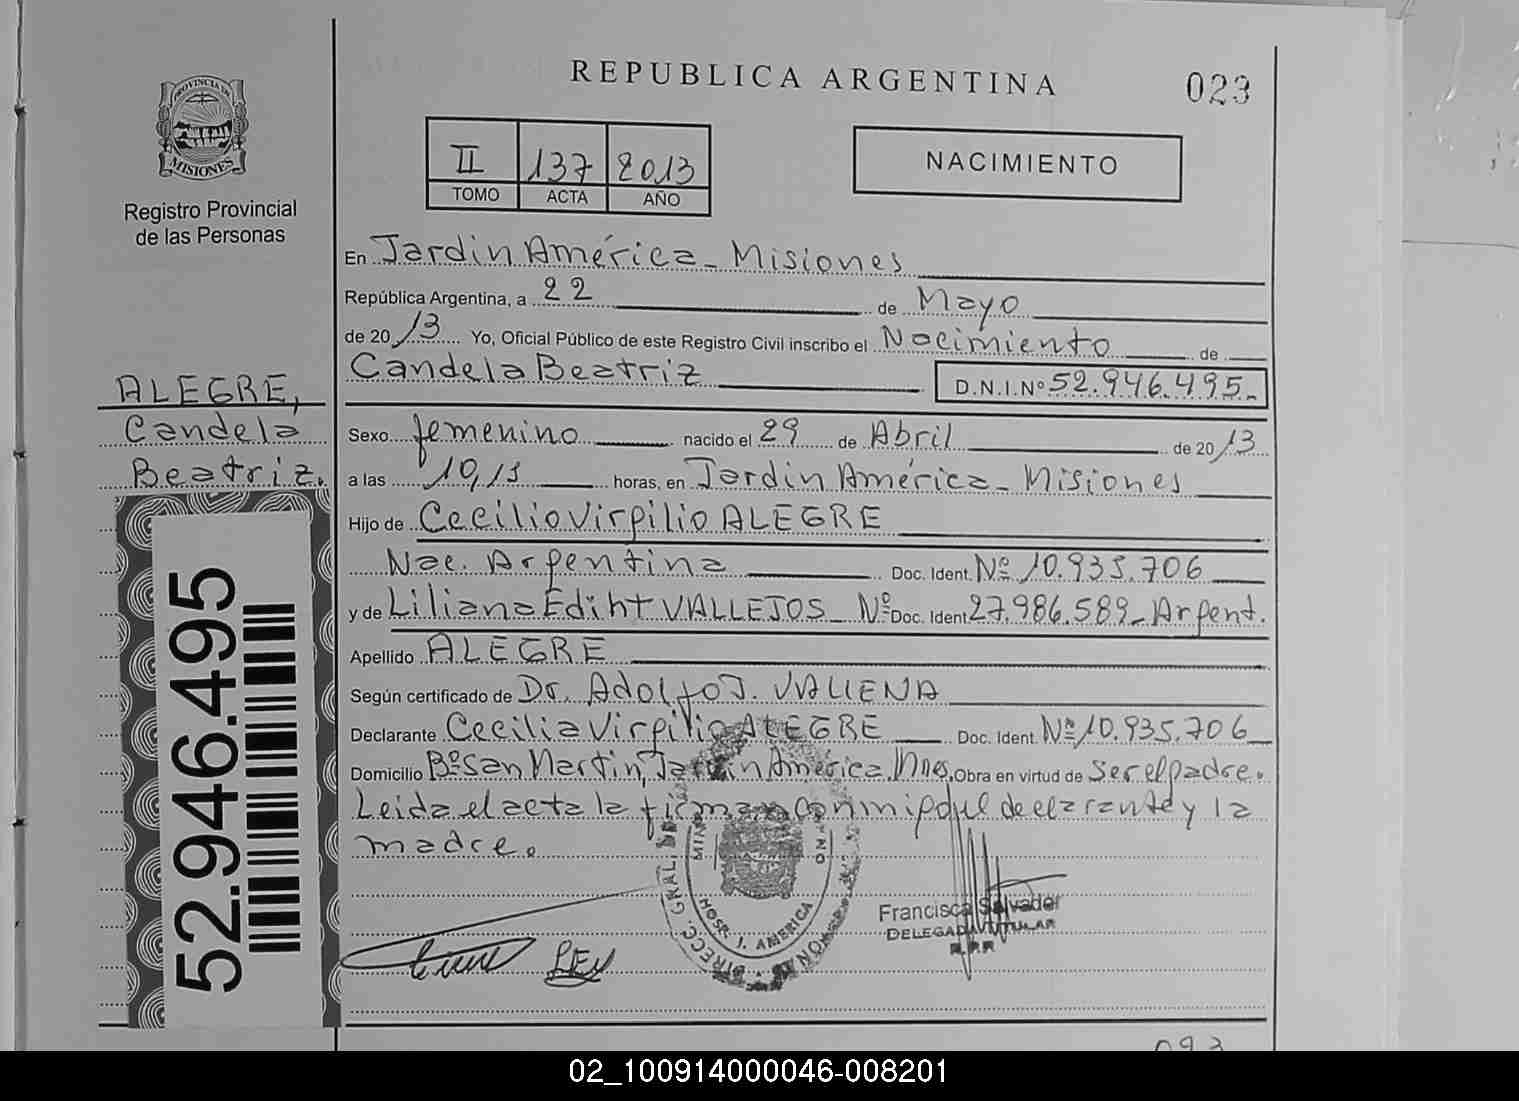 REPUBLICA ARGENTINA
023
PROVINCIA DE
MISIONES
Registro Provincial
de las Personas
II 137 2013
TOMO ACTA AÑO
NACIMIENTO
En Jardin América - Misiones
República Argentina, a 22 de Mayo
de 2013 Yo, Oficial Público de este Registro Civil inscribo el Nacimiento de
Candela Beatriz D.N.I.Nº 52.946.495.-
ALEGRE,
Candela
Beatriz.
Sexo femenino nacido el 29 de Abril de 2013
a las 10,15 horas, en Jardin América - Misiones
Hijo de Cecilio Virgilio ALEGRE
Nac. Argentina Doc. Ident. Nº 10.935.706
y de Liliana Ediht VALLEJOS - Nº Doc. Ident 27.986.589 - Argent.
Apellido ALEGRE
Según certificado de Dr. Adolfo J. VALLENA
Declarante Cecilia Virgilio ALEGRE Doc. Ident. Nº 10.935.706
Domicilio Bº San Martin, Jardin América, Mnes. Obra en virtud de ser el padre.
Leida el acta la firman conmigo el declarante y la
madre.
52.946.495
DIRECC. GRAL.
HOSP. J. AMERICA
Francisca Salvador
DELEGADA TITULAR
R.P.P
093
02_100914000046-008201